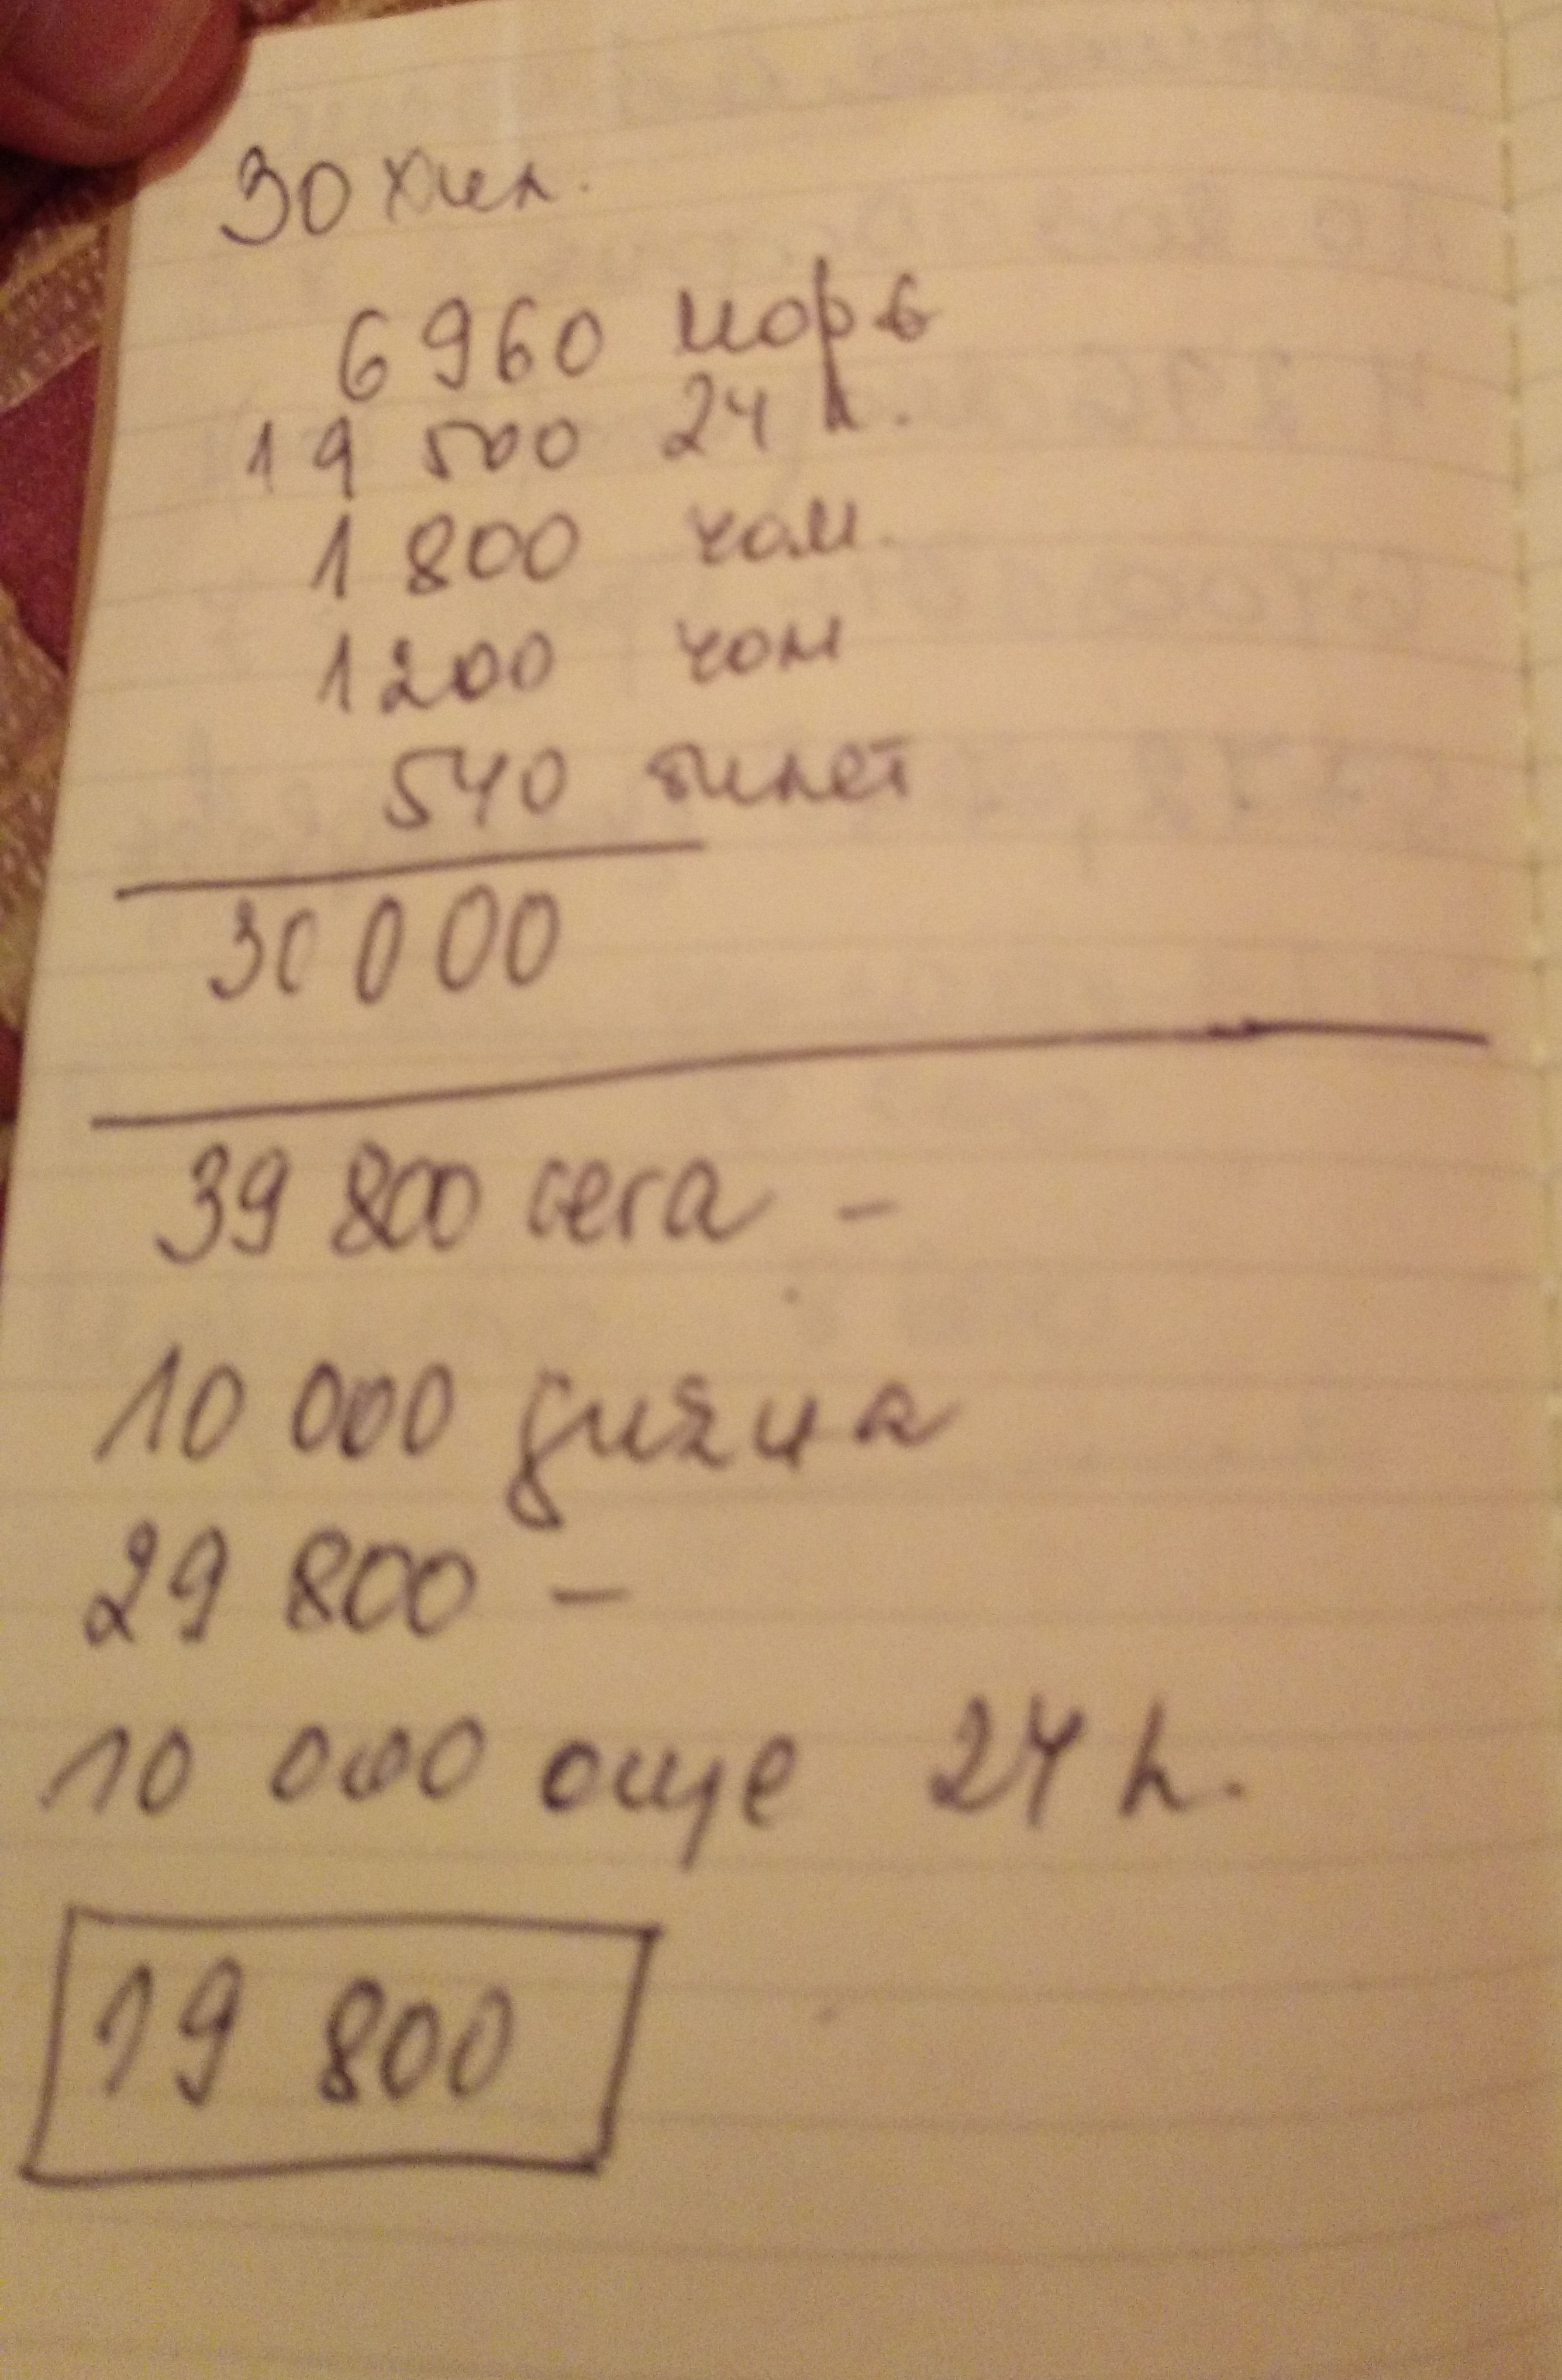 30 хил.
6 960 морв
19 500 24 h.
1 800 чом.
1 200 чом
540 билет
30 000
39 800 сега -
10 000
29 800 -
10 000 още 24 h.
19 800